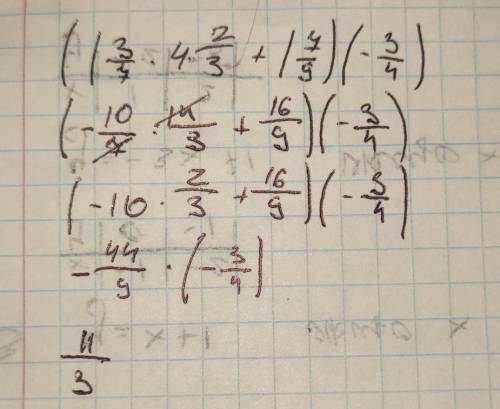 (1 3/7 · 4 · 2/3 + 1 7/9)(- 3/4)
(- 10/7 · 14/3 + 16/9)(- 3/4)
(-10 · 2/3 + 16/9)(- 3/4)
- 44/9 · (- 3/4)
11/3